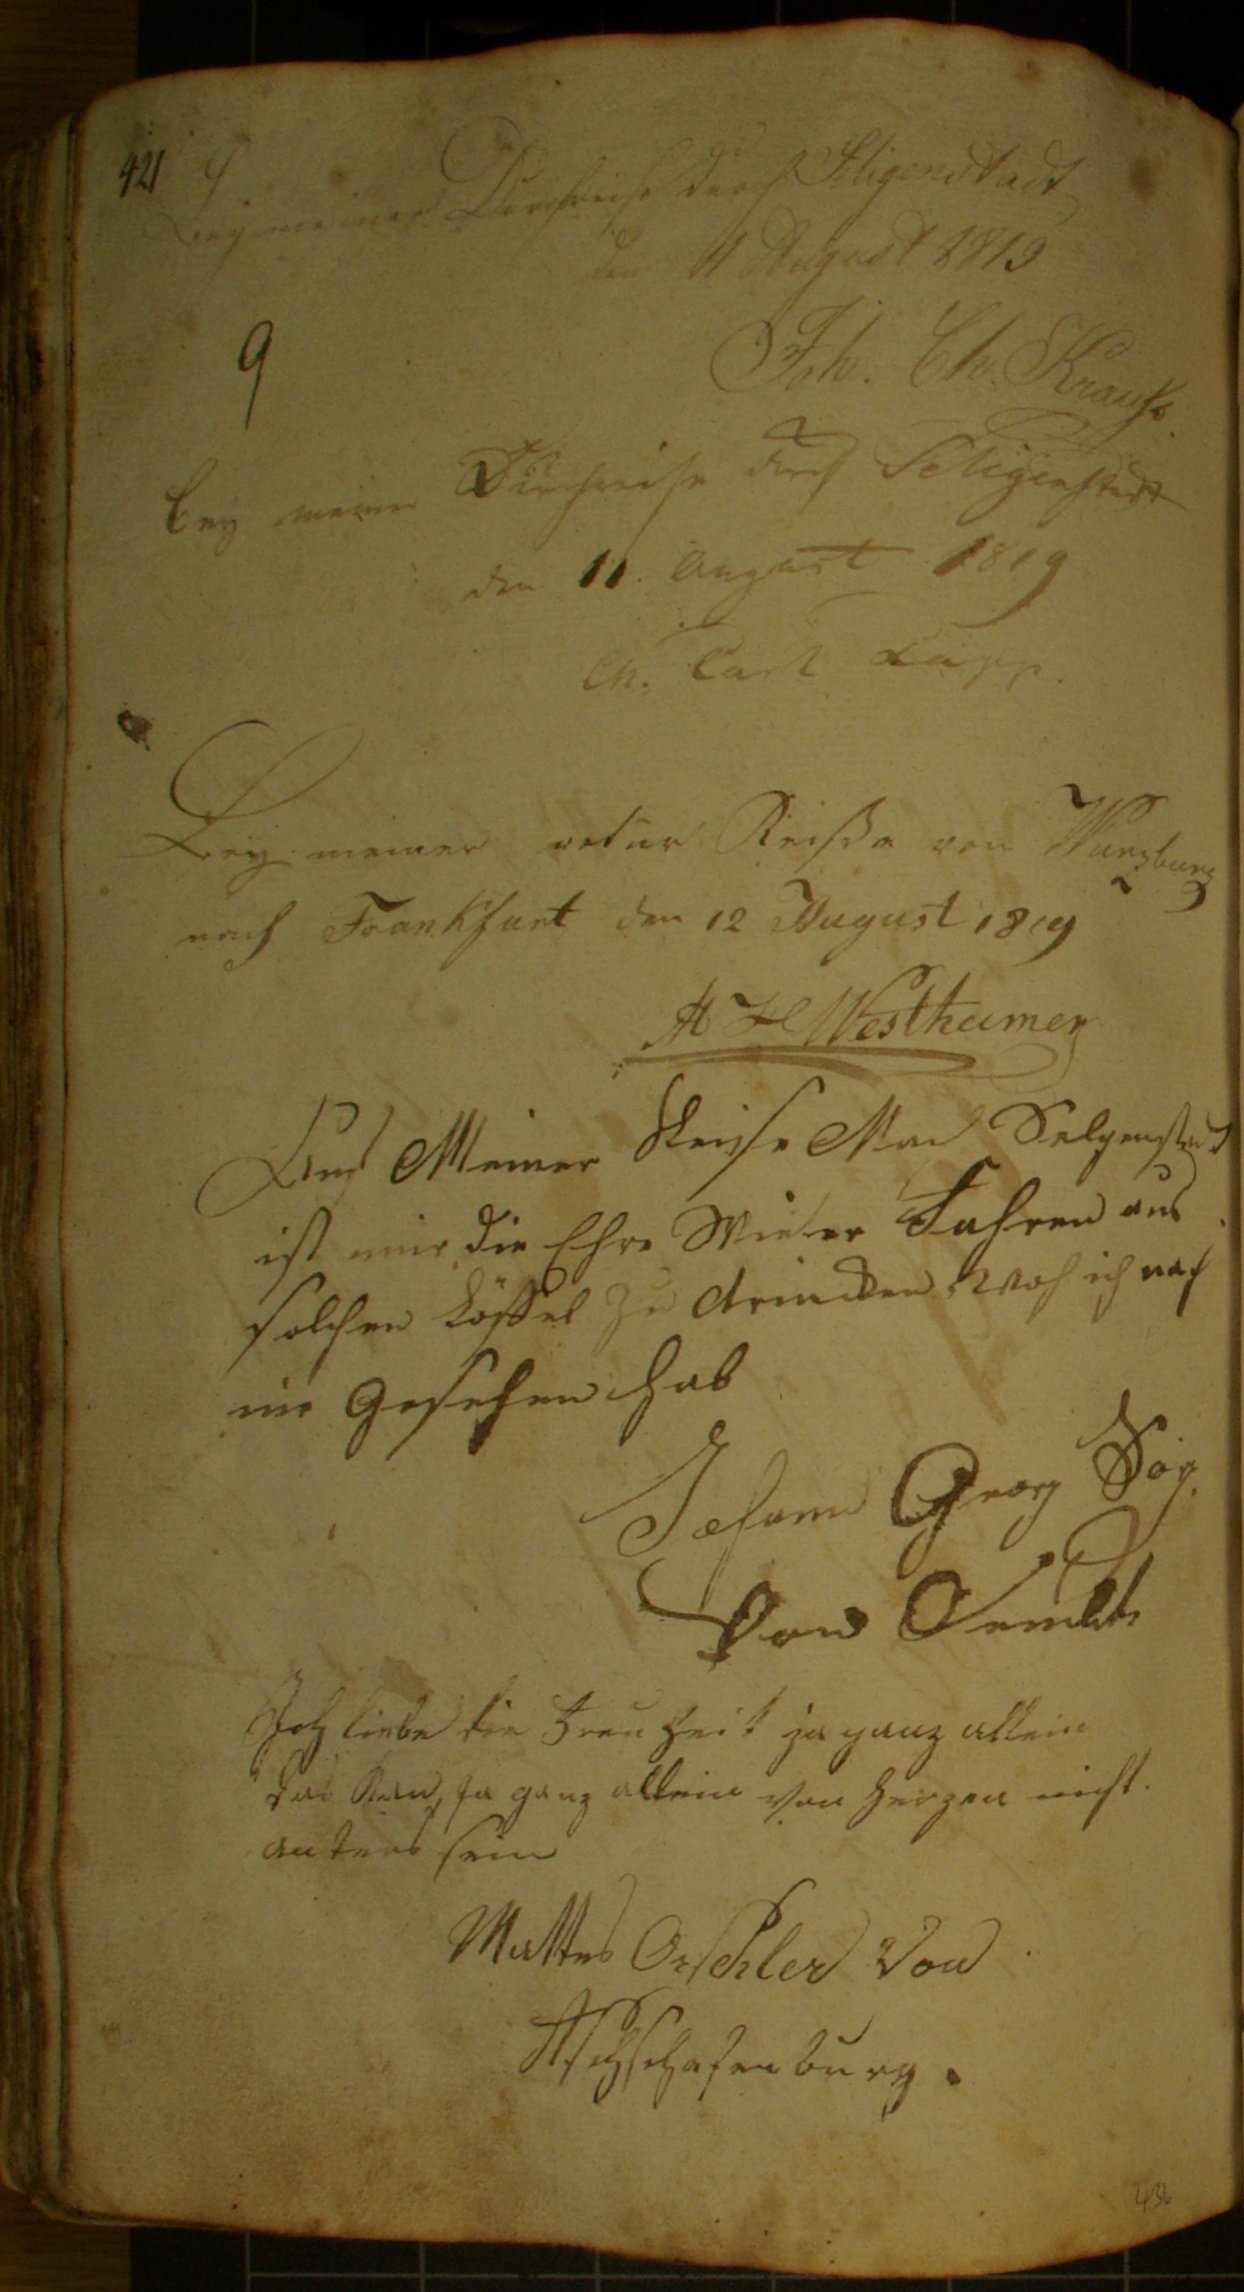 421
Bey meiner Durchreise durch Seligenstadt
den 11 August 1819
9
Joh. Ch. Krauß.
bey meiner Durchreise durch Seligenstadt
den 11. August 1819
Ch. Carl Kapp.
Bey meiner retur Reißße von Würzburg
nach Frankfurt den 12 August 1819
A H Westhamer
Auf Meiner Reise Nach Selgenstadt
ist mir die Ehre Wieder Fahren aus
solchen Löffel zu drincken, Woh ich noch
nie Gesehen hab
Johann Georg
Von
Ich liebe die Freuheit ja ganz allein
Das kan, ja ganz allein von Herzen nicht
anters sein
Mattes Oeschler Von
Aschschafenburg.
436